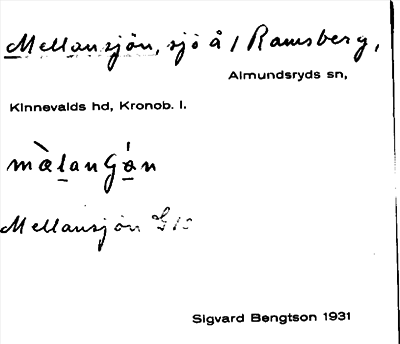 Mellansjön, sjö å 1 Ramsberg,
Almundsryds sn,
Kinnevalds hd, Kronob. l.
Mellansjön
Sigvard Bengtson 1931